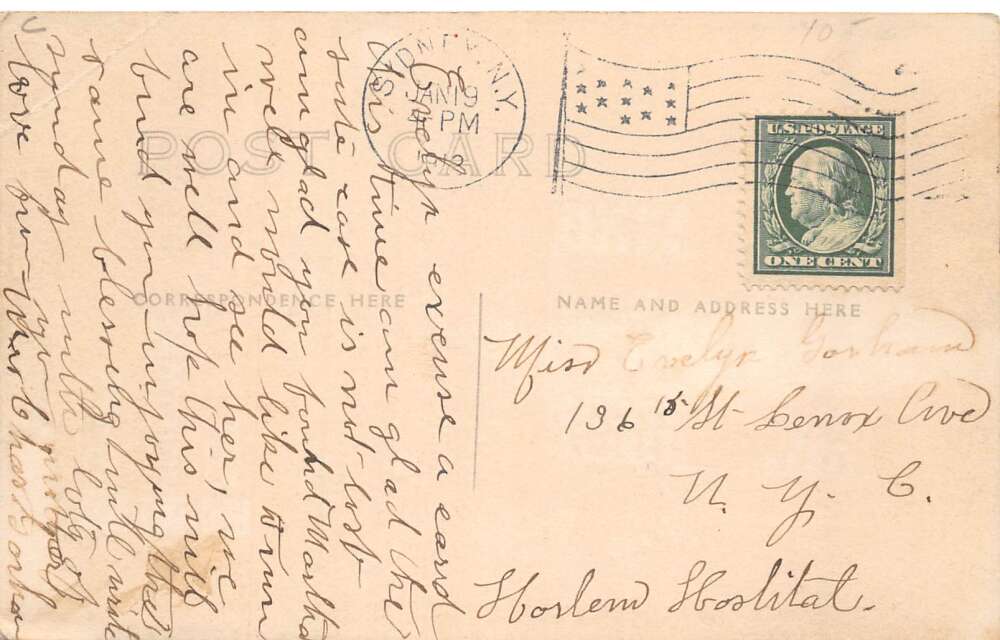 10
SIDNEY, N.Y.
JAN 19
4 PM
U.S. POSTAGE
ONE CENT
POST CARD
CORRESPONDENCE HERE
NAME AND ADDRESS HERE
Evelyn excuse a card
this time am glad the
suite case is not lost
am glad you found Martha
well would like to run
in and see her, we
are well hope this will
find you injoying the
same blessing will write
Sunday with lots
love from
Miss Evelyn Gorham
136 St Lenox Ave
N. Y. C.
Harlem Hoslital.